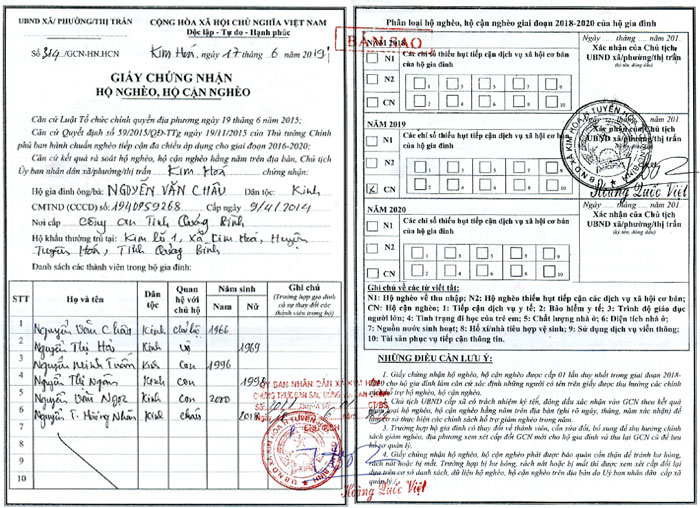 UBND XÃ/PHƯỜNG/THỊ TRẤN
CỘNG HÒA XÃ HỘI CHỦ NGHĨA VIỆT NAM
Độc lập - Tự do - Hạnh phúc
Số 314/GCN-HN.HCN
Kim Hoá, ngày 17 tháng 6 năm 2019
GIẤY CHỨNG NHẬN
HỘ NGHÈO, HỘ CẬN NGHÈO
Căn cứ Luật Tổ chức chính quyền địa phương ngày 19 tháng 6 năm 2015;
Căn cứ Quyết định số 59/2015/QĐ-TTg ngày 19/11/2015 của Thủ tướng Chính
phủ ban hành chuẩn nghèo tiếp cận đa chiều áp dụng cho giai đoạn 2016-2020;
Căn cứ kết quả rà soát hộ nghèo, hộ cận nghèo hằng năm trên địa bàn, Chủ tịch
Ủy ban nhân dân xã/phường/thị trấn Kim Hoá chứng nhận:
Hộ gia đình ông/bà: NGUYỄN VĂN CHÂU Dân tộc: Kinh
CMTND (CCCD) số: 1940959268 Cấp ngày 9/4/2014
Nơi cấp Công an Tỉnh Quảng Bình
Hộ khẩu thường trú tại: Kim lũ 1, Xã Kim Hoá, Huyện
Tuyên Hoá, Tỉnh Quảng Bình
Danh sách các thành viên trong hộ gia đình:
STT Họ và tên Dân tộc Quan hệ với chủ hộ Năm sinh Nam Nữ Ghi chú (Trường hợp gia đình có sự thay đổi các thành viên trong hộ)
1 Nguyễn Văn Châu Kinh chủ hộ 1966
2 Nguyễn Thị Hoà Kinh vợ 1969
3 Nguyễn Minh Tuấn Kinh con 1996
4 Nguyễn Thị Ngân Kinh con 1998
5 Nguyễn Văn Ngọc Kinh con 2000
6 Nguyễn T. Hoàng Nhân Kinh cháu 2018
7
8
9
10
Hoàng Quốc Việt
BẢN SAO
Phân loại hộ nghèo, hộ cận nghèo giai đoạn 2018-2020 của hộ gia đình
NĂM 2018
N1
N2
CN
Các chỉ số thiếu hụt tiếp cận dịch vụ xã hội cơ bản của hộ gia đình
1 2 3 4 5
6 7 8 9 10
Ngày .... tháng .... năm 201.
Xác nhận của Chủ tịch
UBND xã/phường/thị trấn
(ký tên, đóng dấu)
NĂM 2019
N1
N2
CN
Các chỉ số thiếu hụt tiếp cận dịch vụ xã hội cơ bản của hộ gia đình
1 2 3 4 5
6 7 8 9 10
Hoàng Quốc Việt
NĂM 2020
N1
N2
CN
Các chỉ số thiếu hụt tiếp cận dịch vụ xã hội cơ bản của hộ gia đình
1 2 3 4 5
6 7 8 9 10
Ngày .... tháng .... năm 201.
Xác nhận của Chủ tịch
UBND xã/phường/thị trấn
(ký tên, đóng dấu)
Ghi chú về các từ viết tắt:
N1: Hộ nghèo về thu nhập; N2: Hộ nghèo thiếu hụt tiếp cận các dịch vụ xã hội cơ bản;
CN: Hộ cận nghèo; 1: Tiếp cận dịch vụ y tế; 2: Bảo hiểm y tế; 3: Trình độ giáo dục
người lớn; 4: Tình trạng đi học của trẻ em; 5: Chất lượng nhà ở; 6: Diện tích nhà ở;
7: Nguồn nước sinh hoạt; 8: Hố xí/nhà tiêu hợp vệ sinh; 9: Sử dụng dịch vụ viễn thông;
10: Tài sản phục vụ tiếp cận thông tin.
NHỮNG ĐIỀU CẦN LƯU Ý:
1. Giấy chứng nhận hộ nghèo, hộ cận nghèo được cấp 01 lần duy nhất trong giai đoạn 2018-
2020 cho hộ gia đình làm căn cứ xác định những người có tên trên giấy được thụ hưởng các chính
sách hỗ trợ hộ nghèo, hộ cận nghèo.
2. Chủ tịch UBND cấp xã có trách nhiệm ký tên, đóng dấu xác nhận vào GCN theo kết quả
phân loại hộ nghèo, hộ cận nghèo hằng năm trên địa bàn (ghi rõ ngày, tháng, năm xác nhận) để
làm cơ sở thực hiện các chính sách hỗ trợ giảm nghèo trong năm.
3. Trường hợp hộ gia đình có thay đổi về thành viên, cần sửa đổi, bổ sung để thụ hưởng
chính sách giảm nghèo, địa phương xem xét cấp đổi GCN mới cho hộ gia đình và thu lại GCN cũ để lưu
hồ sơ quản lý.
4. Giấy chứng nhận hộ nghèo, hộ cận nghèo phải được bảo quản cẩn thận để tránh hư hỏng,
rách nát hoặc bị mất. Trường hợp bị hư hỏng, rách nát hoặc bị mất thì được xem xét cấp đổi lại
dựa trên cơ sở danh sách, dữ liệu hộ nghèo, hộ cận nghèo trên địa bàn do Uỷ ban nhân dân cấp xã
quản lý.